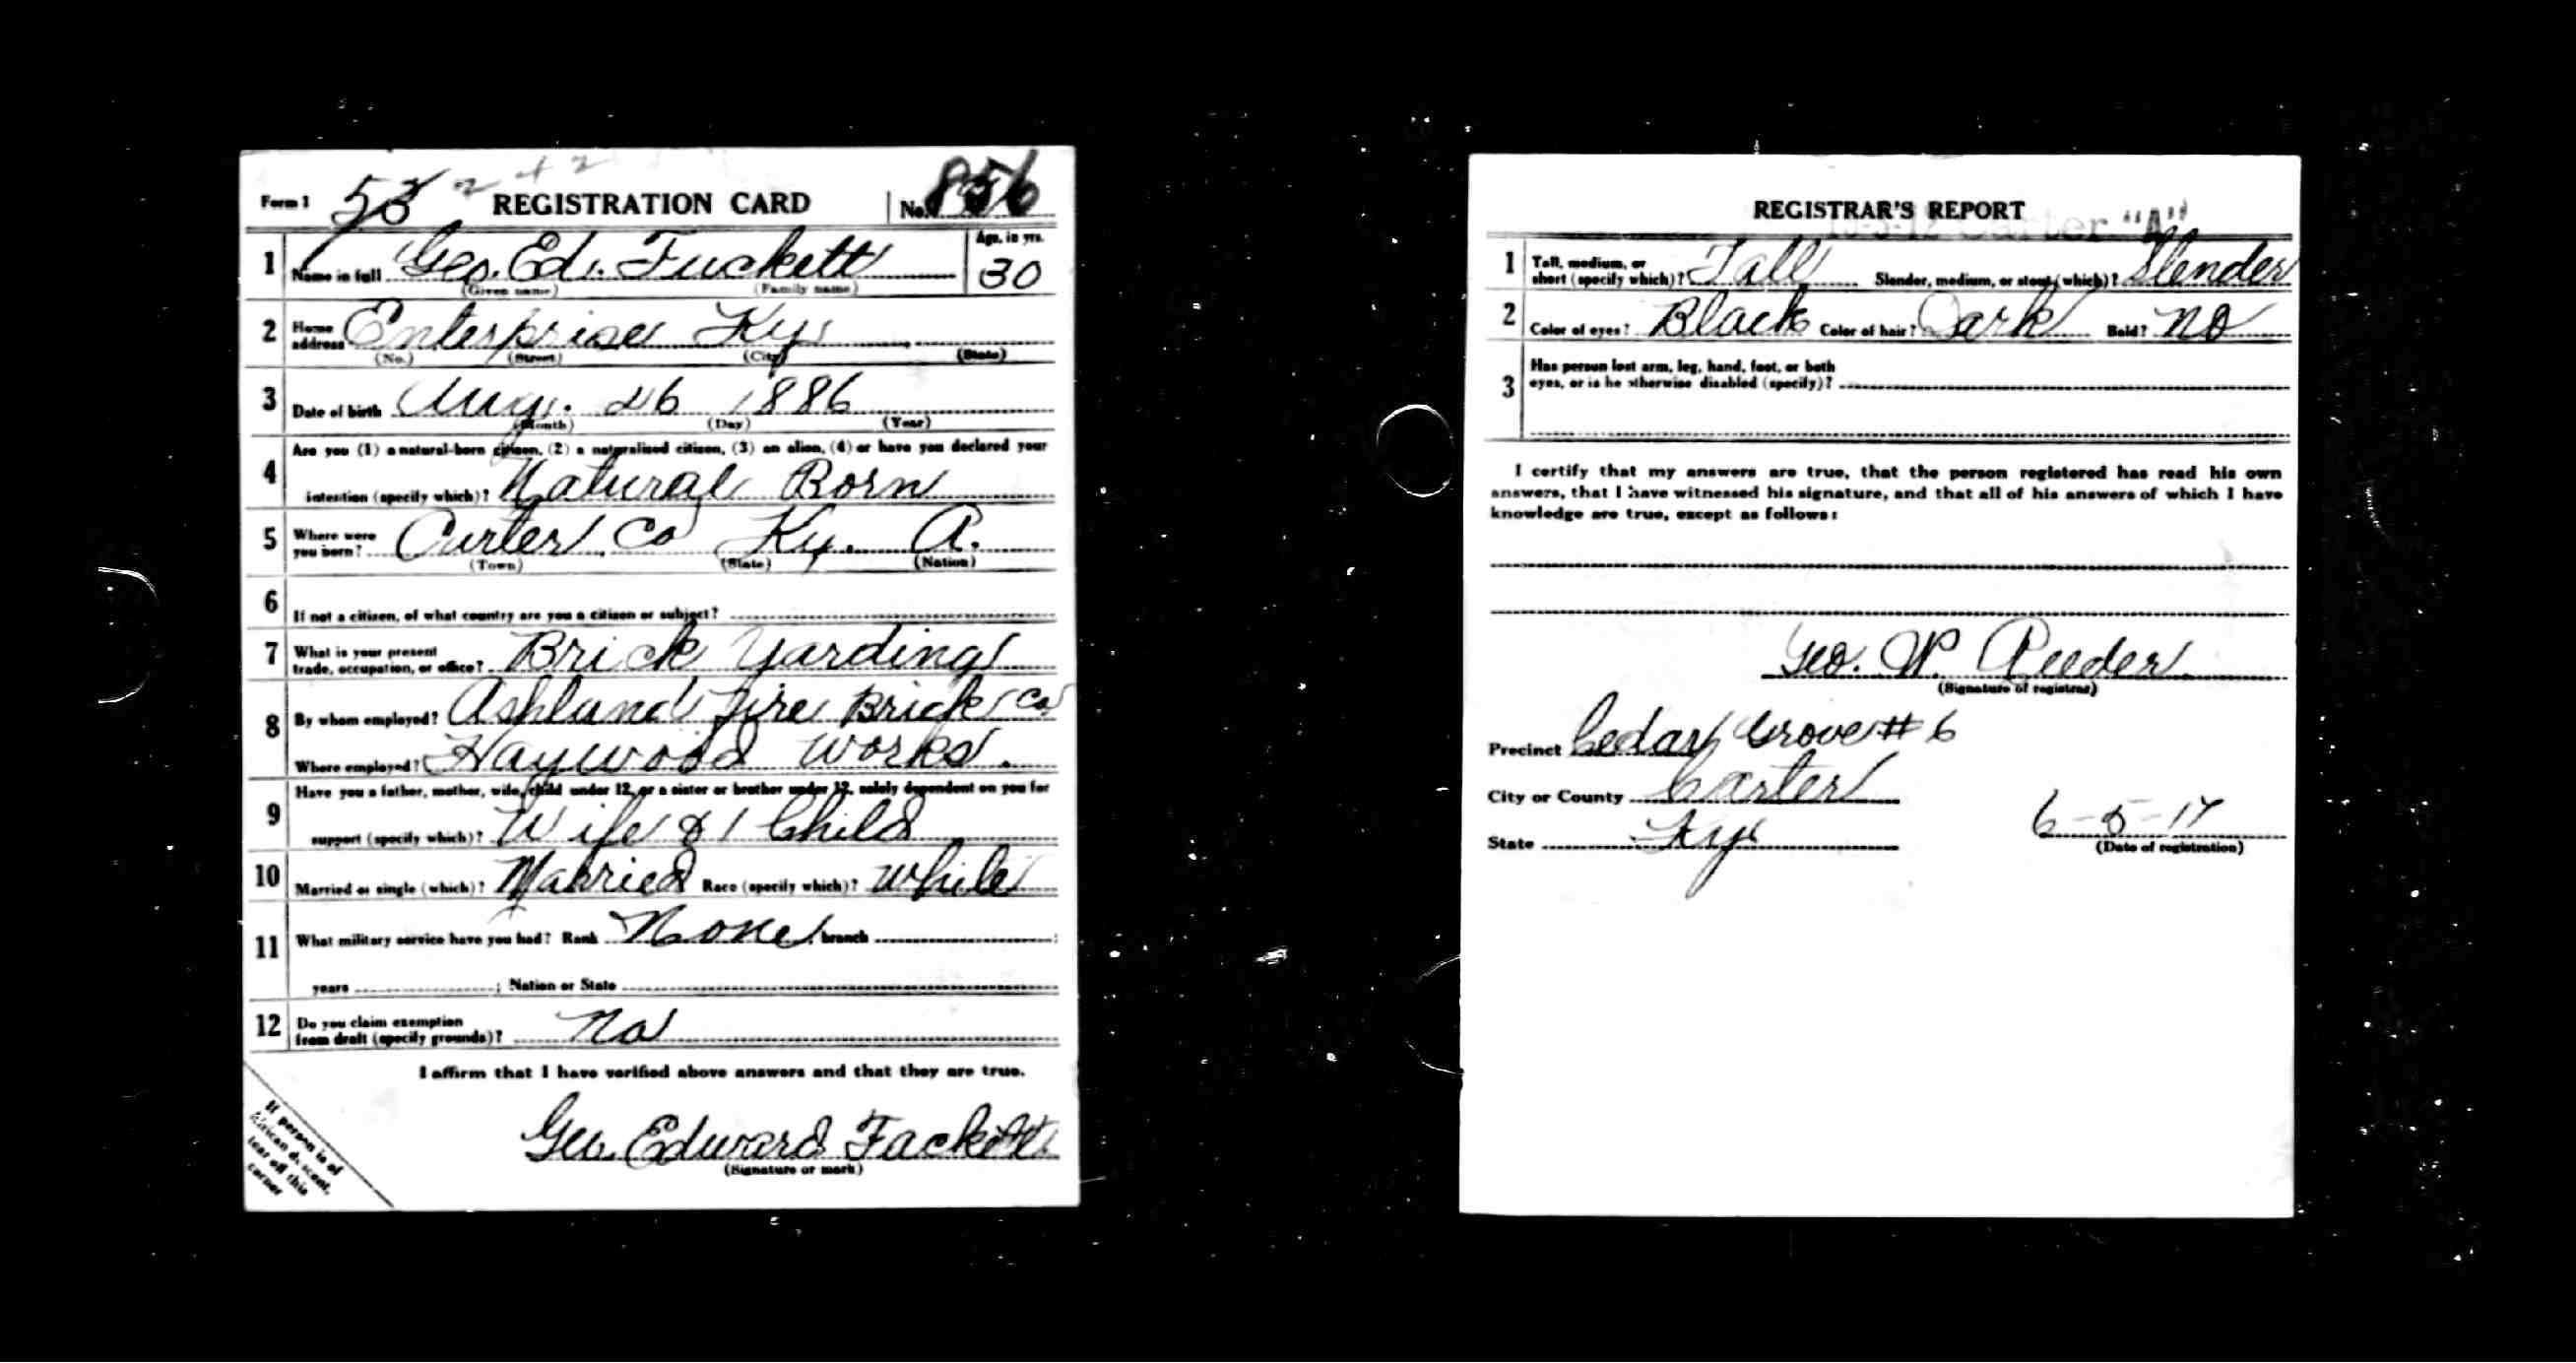 Form 1 53 242 REGISTRATION CARD No. 856
1 Name in full Geo. Ed. Fuckett Age, in yrs. 30
(Given name) (Family name)
2 Home address Enterprise Ky
(No.) (Street) (City) (State)
3 Date of birth Aug. 26 1886
(Month) (Day) (Year)
Are you (1) a natural-born citizen, (2) a naturalized citizen, (3) an alien, (4) or have you declared your
4 intention (specify which)? Natural Born
5 Where were you born? Carter Co Ky. A.
(Town) (State) (Nation)
6 If not a citizen, of what country are you a citizen or subject?
7 What is your present trade, occupation, or office? Brick Yarding
8 By whom employed? Ashland Fire Brick Co
Where employed? Haywood Works.
Have you a father, mother, wife, child under 12, or a sister or brother under 12, solely dependent on you for
9 support (specify which)? Wife & 1 Child
10 Married or single (which)? Married Race (specify which)? White
11 What military service have you had? Rank None, branch ;
years ; Nation or State
12 Do you claim exemption from draft (specify grounds)? No
I affirm that I have verified above answers and that they are true.
Geo. Edward Fackett
(Signature or mark)
If person is of
African descent,
tear off this
corner
REGISTRAR'S REPORT
Carter "A"
1 Tall, medium, or short (specify which)? Tall Slender, medium, or stout (which)? Slender
2 Color of eyes? Black Color of hair? Dark Bald? no
3 Has person lost arm, leg, hand, foot, or both
eyes, or is he otherwise disabled (specify)?
I certify that my answers are true, that the person registered has read his own
answers, that I have witnessed his signature, and that all of his answers of which I have
knowledge are true, except as follows:
Geo. W. Reeder
(Signature of registrar)
Precinct Cedar Grove # 6
City or County Carter
State Ky 6-5-17
(Date of registration)